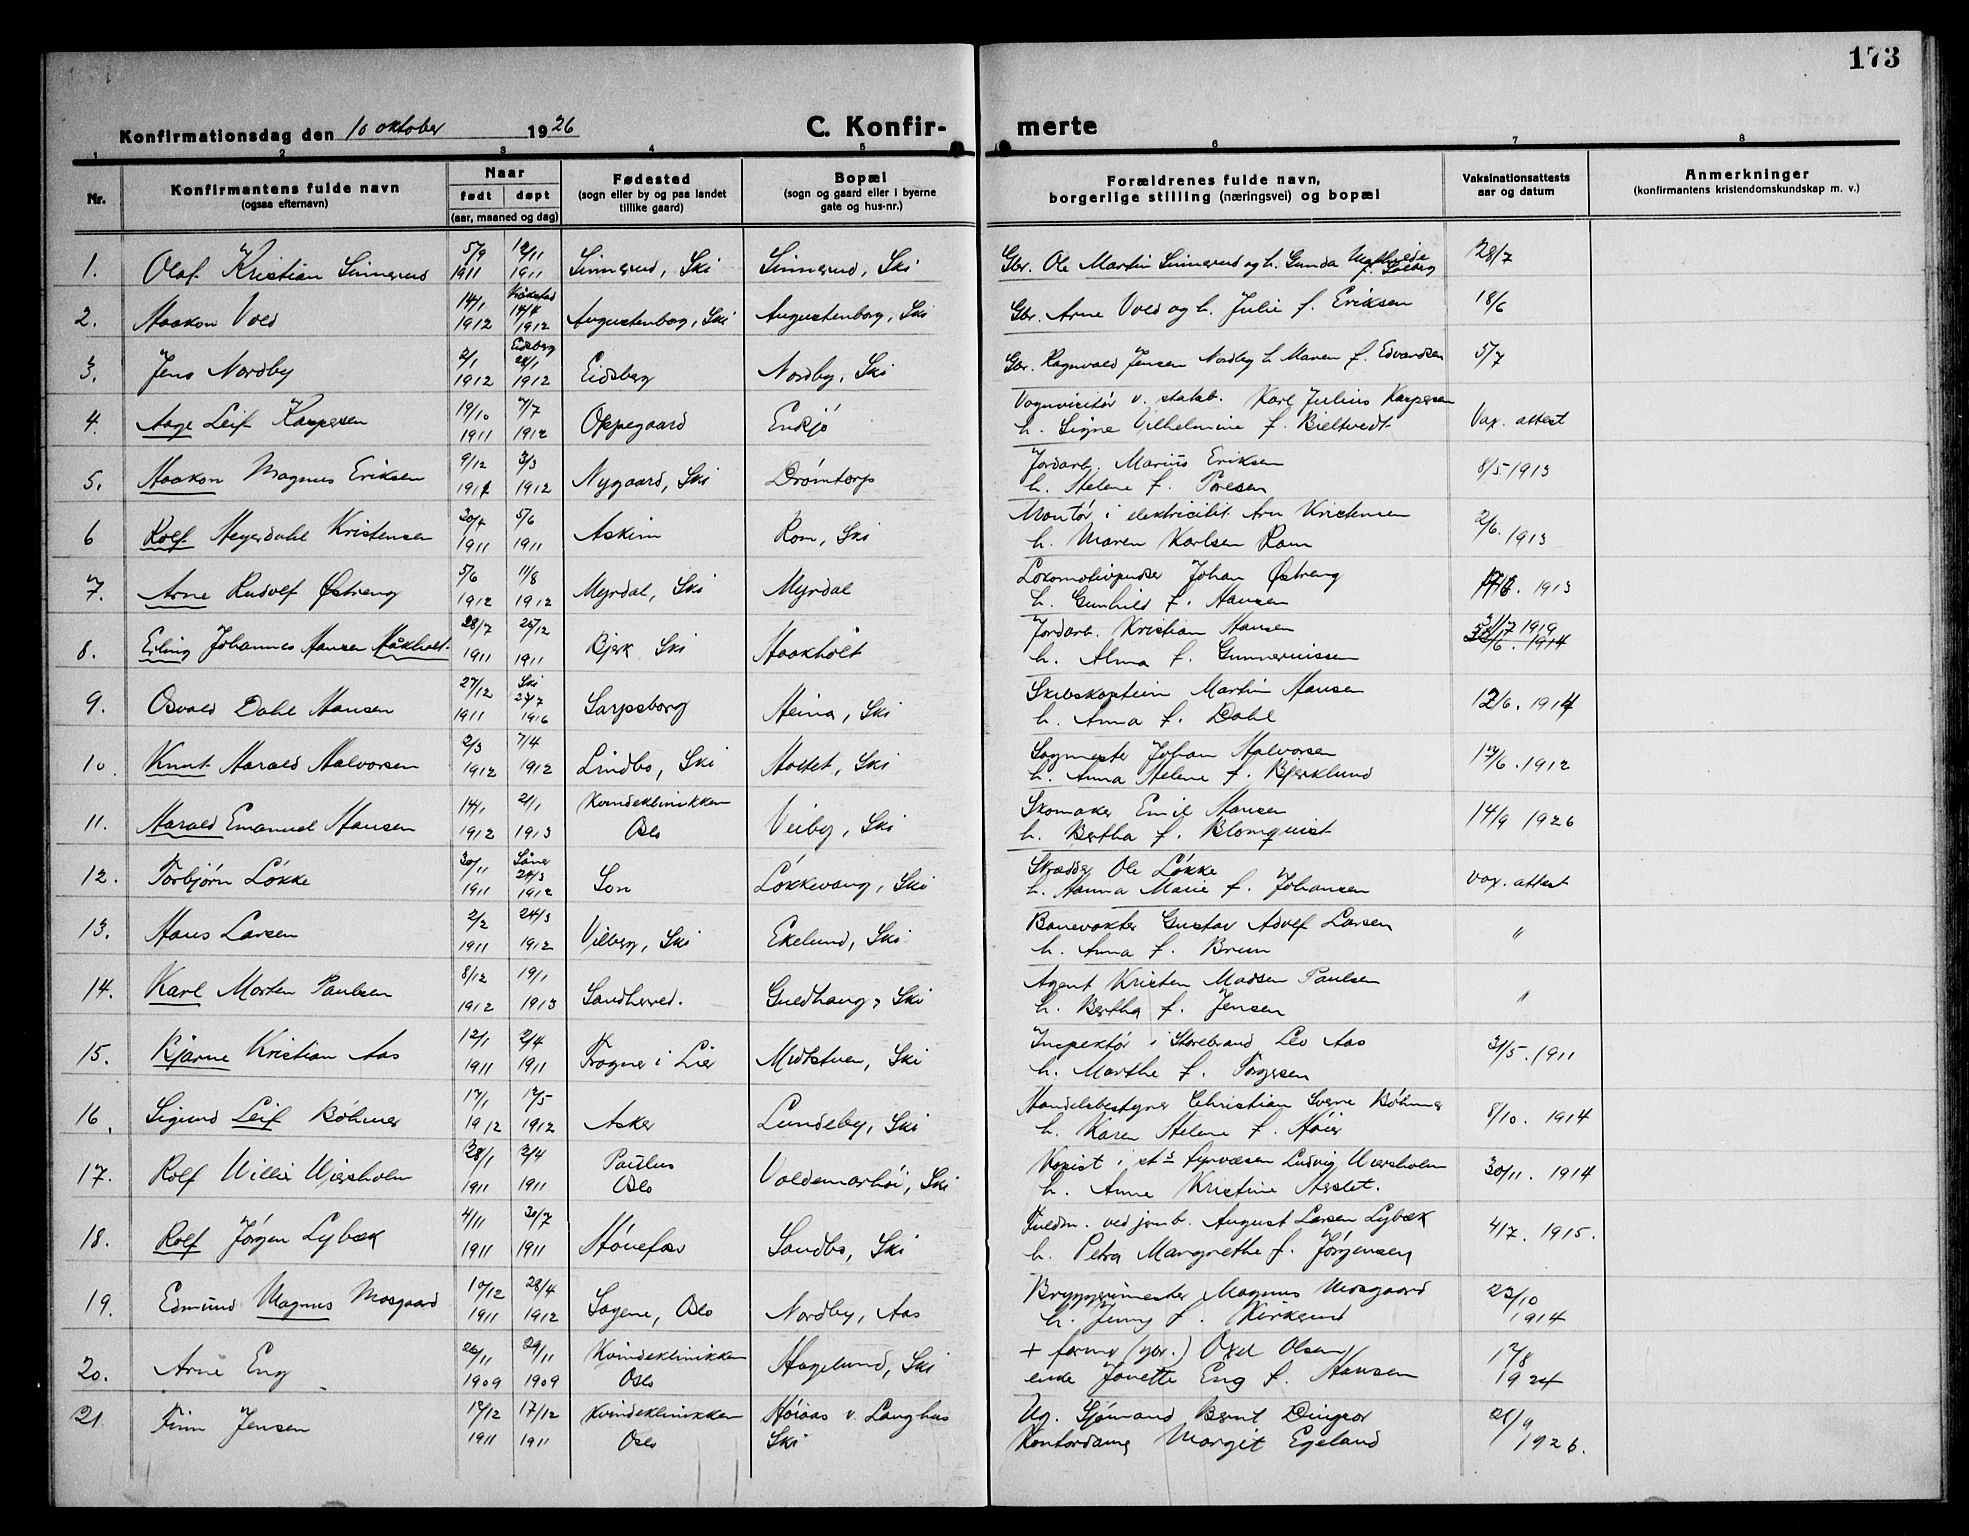 173
Konfirmationsdag den 10 oktober 1926
C. Konfir- merte
1 2 3 4 5 6 7 8
Nr.
Konfirmantens fulde navn
(ogsaa efternavn)
Naar
født døpt
(aar, maaned og dag)
Fødested
(sogn eller by og paa landet
tillike gaard)
Bopæl
(sogn og gaard eller i byerne
gate og hus-nr.)
Forældrenes fulde navn,
borgerlige stilling (næringsvei) og bopæl
Vaksinationsattests
aar og datum
Anmerkninger
(konfirmantens kristendomskundskap m. v.)
1. Olaf Kristian Sinnerud 5/9 1911 12/11 1911 Sinnerud, Ski Sinnerud, Ski Gbr. Ole Martin Sinnerud og h. Gunda Mathilde f. Solberg 28/7
2. Haakon Vold 14/1 1912 Kråkstad 14/4 1912 Augustenborg, Ski Augustenborg, Ski Gbr. Arne Vold og h. Julie f. Eriksen 18/6
3. Jens Nordby 2/1 1912 Eidsberg 28/1 1912 Eidsberg Nordby, Ski Gbr. Ragnvald Jensen Nordby h. Maren f. Edvardsen 5/7
4. Aage Leif Kaspersen 19/10 1911 7/7 1912 Oppegaard Endsjø Vognvisitør v. statsb. Karl Julius Kaspersen
h. Signe Vilhelmine f. Bieltvedt Vax. attest
5. Haakon Magnus Eriksen 9/12 1911 3/3 1912 Nygaard, Ski Drømtorp Jordarb. Marius Eriksen
h. Helene f. Toresen 8/5 1913
6 Rolf Heyerdahl Kristensen 30/4 1911 5/6 1911 Askim Rom, Ski Montør i elektricitet. Arn Kristensen
h. Maren Karlsen Rom 2/6. 1913
7. Arne Rudolf Østreng 5/6 1912 11/8 1912 Myrdal, Ski Myrdal Lokomotivpudser Johan Østreng
h. Gunhild f. Hansen 1913
8. Erling Johannes Hansen Håkholt. 28/7 1911 26/12 1911 Bjerk Ski Haakholt Jordarb. Kristian Hansen
h. Alma f. Gunnerussen 31/7 1919
1914
9. Osvald Dahl Hansen 27/12 1911 Ski 23/7 1916 Sarpsborg Heina, Ski Skibskaptein Martin Hansen
h. Anna f. Dahl 12/6. 1914
10. Knut Harald Halvorsen 2/3 1912 7/4 1912 Lindbo, Ski Holtet, Ski Sagmester Johan Halvorsen
h. Anna Helene f. Bjerklund 14/6. 1912
11. Harald Emanuel Hansen 14/1 1912 2/1 1913 Kvindeklinikken
Oslo Veiby, Ski Skomaker Emil Hansen
h. Bertha f. Blomquist 14/9 1926
12. Torbjørn Løkke 30/11 1911 Såner 24/3 1912 Son Løkkevang, Ski Skrædder Ole Løkke
h. Hanna Marie f. Johansen vax. attest
13. Hans Larsen 2/2 1911 24/3 1912 Vilberg, Ski Ekelund, Ski Banevokter Gustav Adolf Larsen
h. Anna f. Brun "
14. Karl Morten Paulsen 8/12 1912 19/1 1913 Sandherred. Guldhaug, Ski Agent Kristen Madsen Paulsen
h. Bertha f. Jensen "
15. Bjarne Kristian Aas 12/1 1911 2/4 1911 Frogner i Lier Midtstuen, Ski Inspektør i Storebrand Leo Aas
h. Marthe f. Torgersen 31/5. 1911
16. Sigurd Leif Bøhmer 17/1 1912 12/5 1912 Asker Lundeby, Ski Handelsbestyrer Christian Sverre Bøhmer
h. Karen Helene f. Høier 8/10. 1914
17. Rolf Willie Wiersholm 28/1 1911 2/4 1911 Paulus
Oslo Valdemarhøi, Ski Kopist i st.s fyrvæsen Ludvig Wiersholm
h. Anne Kristine Herslet. 30/11. 1914
18. Rolf Jørgen Lybæk 4/11 1911 30/7 1911 Hønefos Sandbo, Ski Fuldm. ved jernb. August Larsen Lybæk
h. Petra Margrethe f. Jørgensen 4/7. 1915.
19. Edmund Magnus Mosgaard 10/12 1911 28/4 1912 Sagene, Oslo Nordby, Aas Bryggerimester Magnus Mosgaard
h. Jenny f. Kirkerud 23/10 1914
20. Arne Eng 26/11 1909 29/11 1909 Kvindeklinikken
Oslo Hagelund, Ski + farmr (gbr.) Oxel Olsen
enke Jonette Eng f. Hansen 17/8 1924
21. Finn Jensen 12/12 1911 17/12 1911 Kvindeklinikken
Oslo Høiaas v. Langhus
Ski Ug. Sjømand Bernt Dingsor
Kontordame Margit Egeland 21/9 1926.